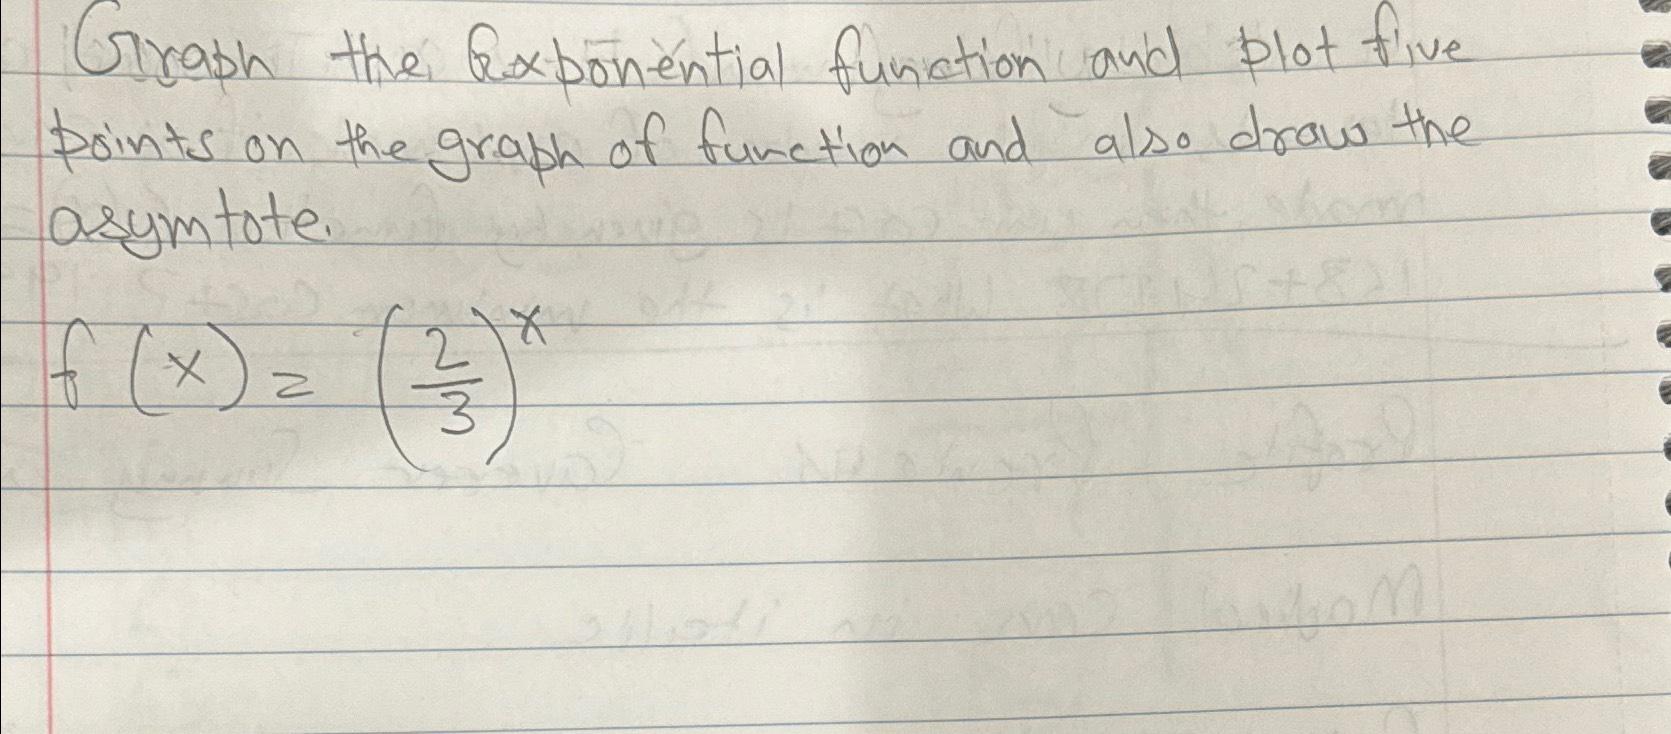 Graph the Exponential function and plot five
points on the graph of function and also draw the
asymtote.
f(x) = (2/3)^x